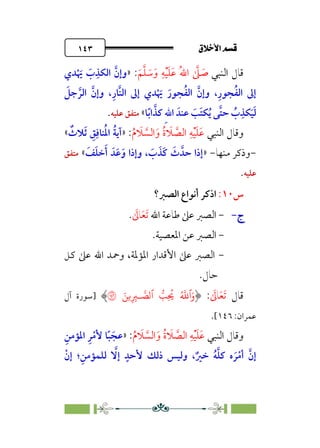 قسم الأخلاق
١٤٣
قال النبي صَلَّى اللهُ عَلَيْهِ وَسَلَّمَ: «وإنَّ الكذِبَ يَهْدي
إلى الفُجورِ، وإنَّ الفُجورَ يَهْدي إلى النَّارِ، وإنَّ الرَّجلَ
لَيَكْذِبُ حتَّى يُكْتَبَ عندَ الله كذَّابًا» متفق عليه.
وقال النبي عَلَيْهِ الصَّلَاةُ وَالسَّلَامُ: «آيةُ المُنافِقِ ثلاثٌ»
-وذكر منها- «إذا حدَّثَ كَذَبَ، وإذا وَعَدَ أَخلَفَ» متفق
عليه.
س١٠: اذكر أنواع الصبر؟
ج- - الصبر على طاعة الله تَعَالَى.
- الصبر عن المعصية.
- الصبر على الأقدار المؤلمة، وحمد الله على كل
حال.
قال تَعَالَى: ﴿وَٱللَّهُ يُحِبُّ ٱلصَّٰبِرِينَ ١٤٦﴾ [سورة آل
عمران: ١٤٦].
وقال النبي عَلَيْهِ الصَّلَاةُ وَالسَّلَامُ: «عجَبًا لأمْرِ المؤمنِ
إنَّ أمْرَه كلَّهُ خيرٌ، وليس ذلك لأحدٍ إلَّا للمؤمنِ؛ إنْ